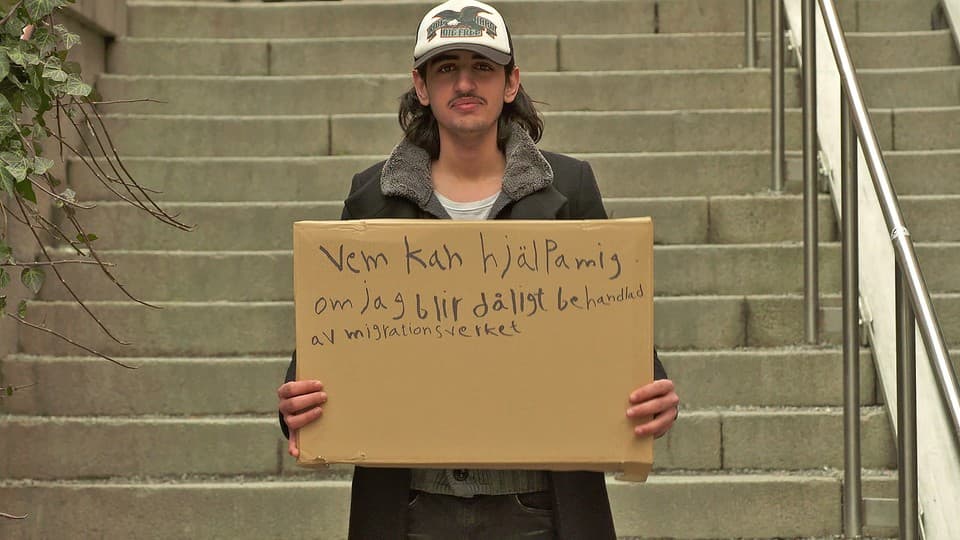 Vem kan hjälpa mig
om jag blir dåligt behandlad
av migrationsverket